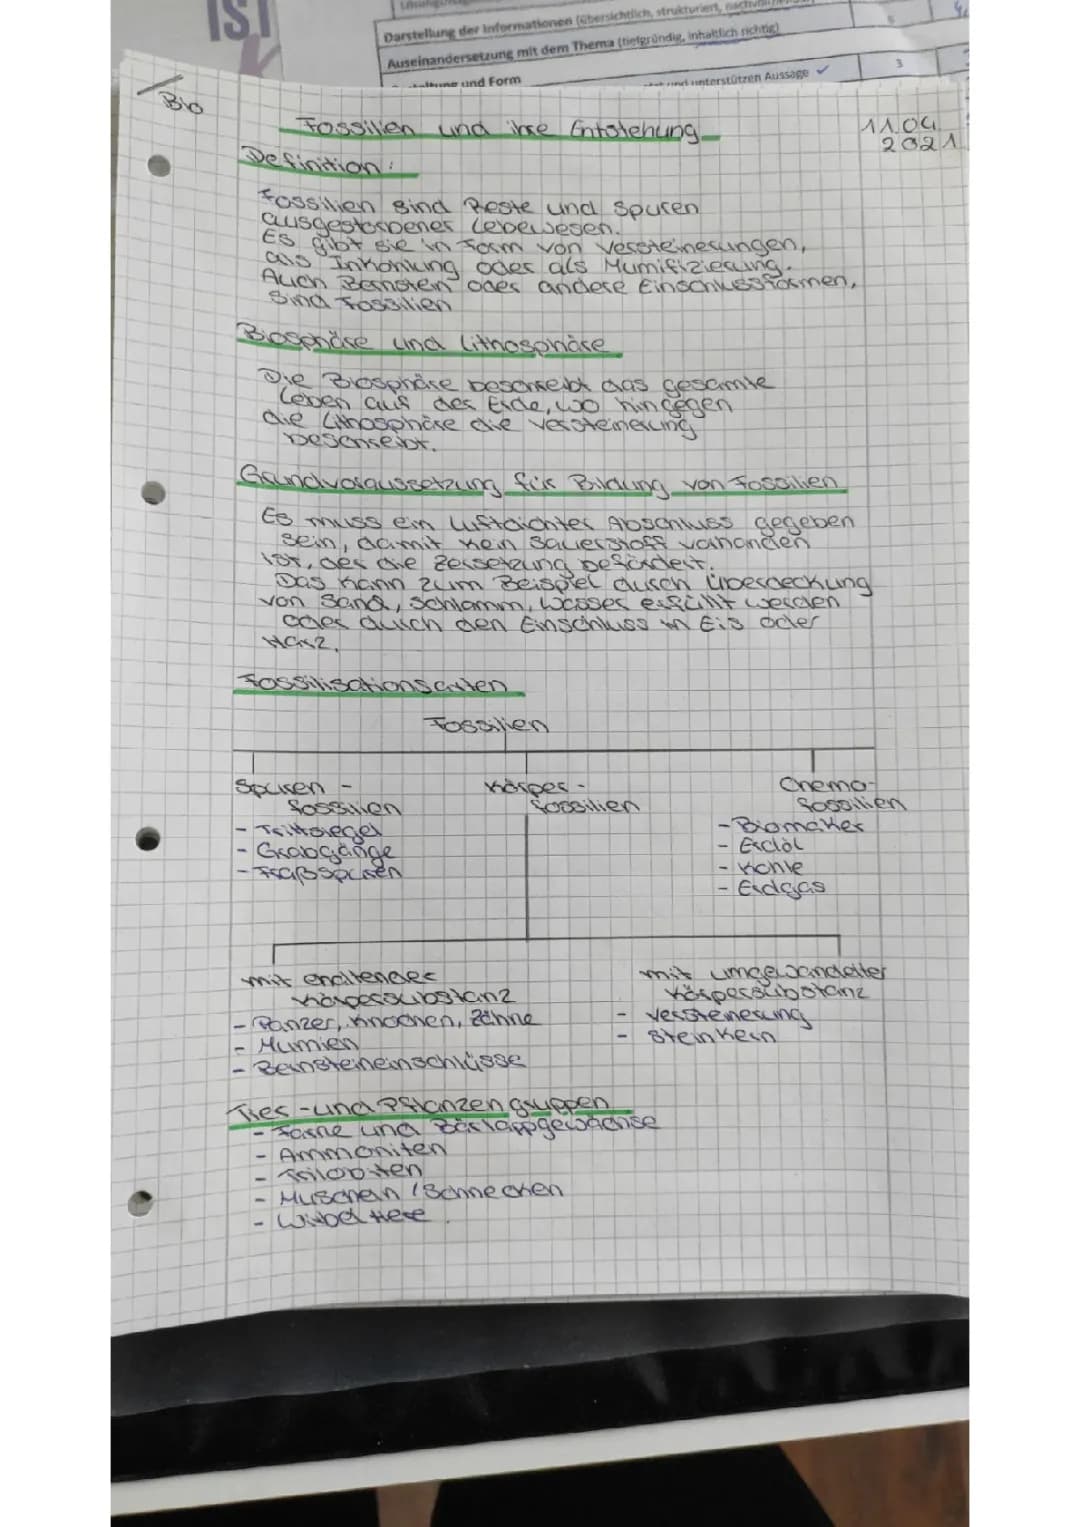 IST
Darstellung der Informationen (übersichtlich, strukturiert,
Auseinandersetzung mit dem Thema (tiefgründig, inhaltlich richtig)
und Form
und unterstützen Aussage ✓
3
Bio
Fossilien und ihre Entstehung
11.04
2021
Definition:
Fossilien sind Reste und Spuren
ausgestorbener Lebewesen.
Es gibt sie in Form von Versteinerungen,
als Inkohlung oder als Mumifizierung.
Auch Bernstein oder andere Einschlussformen,
sind Fossilien
Biosphäre und Lithosphäre
Die Biosphäre beschreibt das gesamte
Leben auf der Erde, wo hingegen
die Lithosphäre die Versteinerung
beschreibt.
Grundvoraussetzung für Bildung von Fossilien
Es muss ein luftdichter Abschluss gegeben
sein, damit kein Sauerstoff vorhanden
ist, der die Zersetzung befördert.
Das kann zum Beispiel durch Überdeckung
von Sand, Schlamm, Wasser erfüllt werden
oder durch den Einschluss in Eis oder
Harz.
Fossilisationsarten
Fossilien
Spuren -
fossilien
- Trittsiegel
- Grabgänge
- Fraßspuren
Körper -
fossilien
Chemo-
fossilien
- Biomaker
- Erdöl
- Kohle
- Erdgas
mit erhaltender
Körpersubstanz
- Panzer, Knochen, Zähne
- Mumien
- Bernsteineinschlüsse
mit umgewandelter
Körpersubstanz
- Versteinerung
- Steinkern
Tier - und Pflanzengruppen
- Farne und Bärlappgewächse
- Ammoniten
- Trilobiten
- Muscheln / Schnecken
- Wirbeltiere